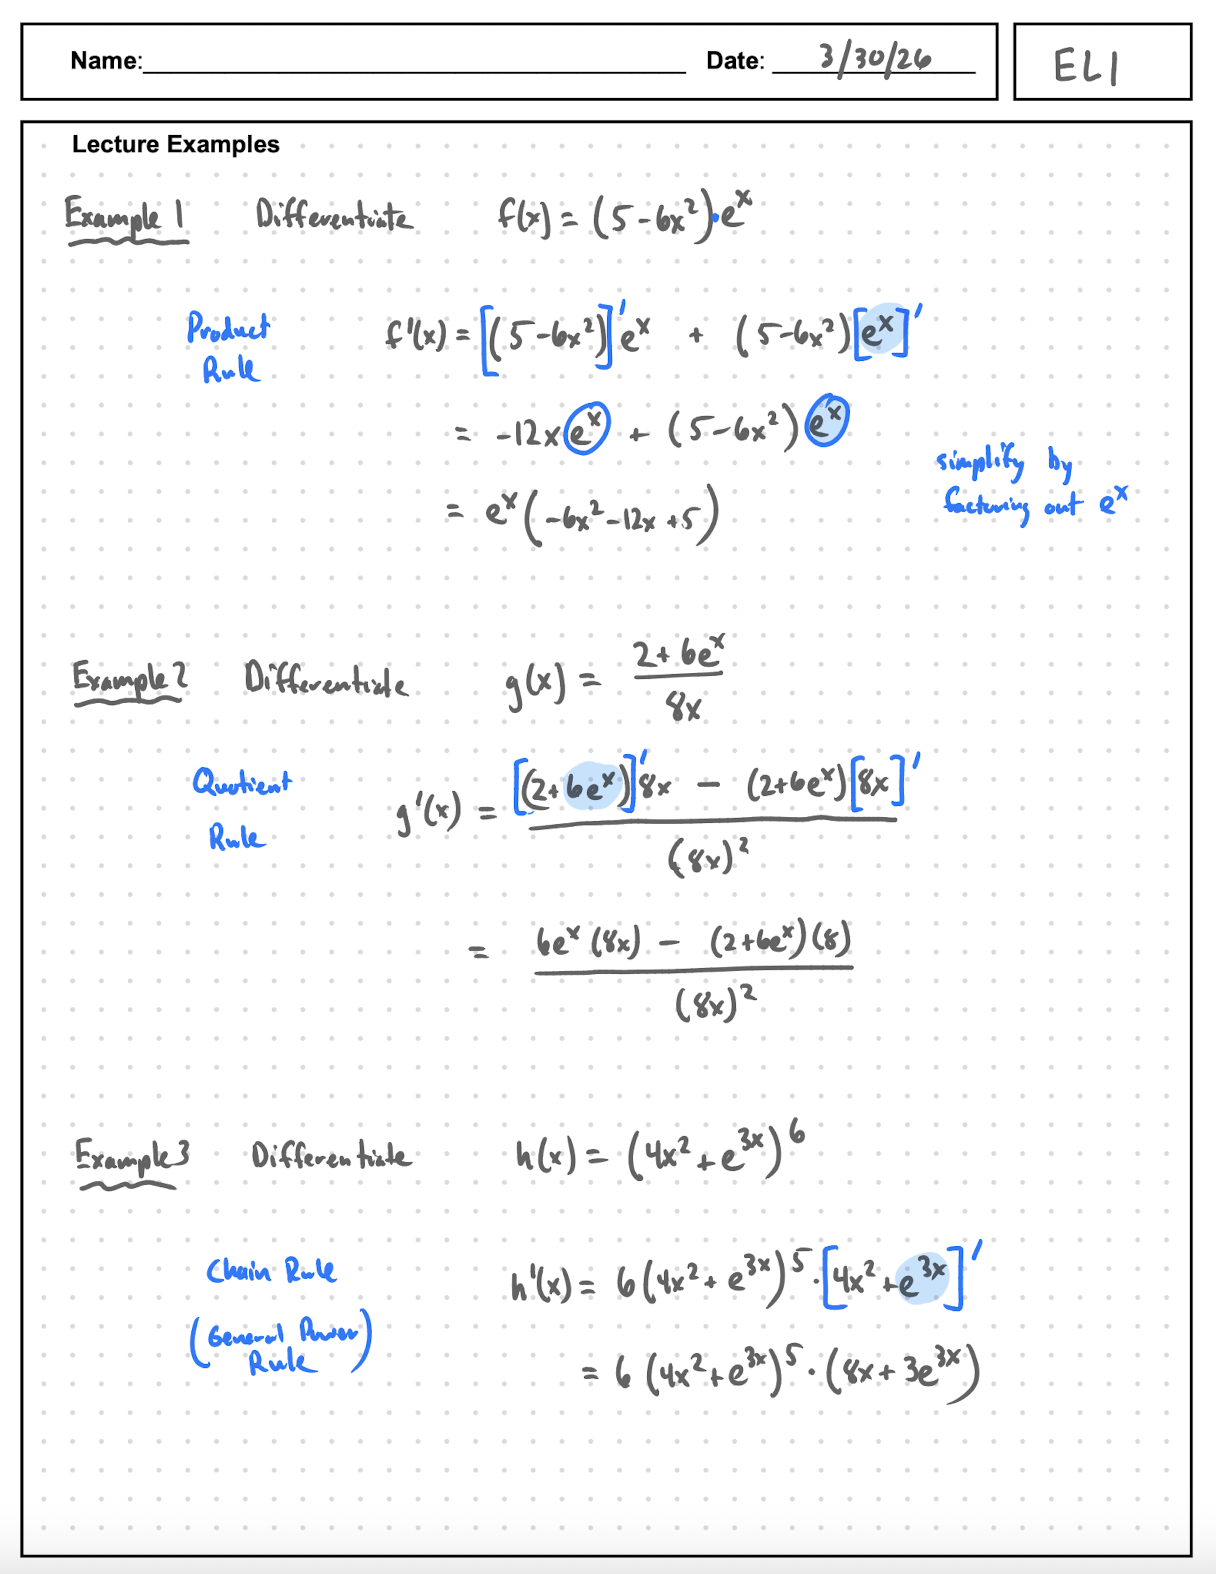 Name: Date: 3/30/26 EL1
Lecture Examples
Example 1 Differentiate f(x) = (5-6x²)·eˣ
Product Rule f'(x) = [(5-6x²)]'eˣ + (5-6x²)[eˣ]'
= -12xeˣ + (5-6x²)eˣ
simplify by
factoring out eˣ
= eˣ(-6x²-12x+5)
Example 2 Differentiate g(x) = (2+6eˣ)/8x
Quotient Rule g'(x) = ([(2+6eˣ)]'8x - (2+6eˣ)[8x]')/(8x)²
= (6eˣ(8x) - (2+6eˣ)(8))/(8x)²
Example 3 Differentiate h(x) = (4x²+e³ˣ)⁶
Chain Rule h'(x) = 6(4x²+e³ˣ)⁵·[4x²+e³ˣ]'
(General Power Rule)
= 6(4x²+e³ˣ)⁵·(8x+3e³ˣ)